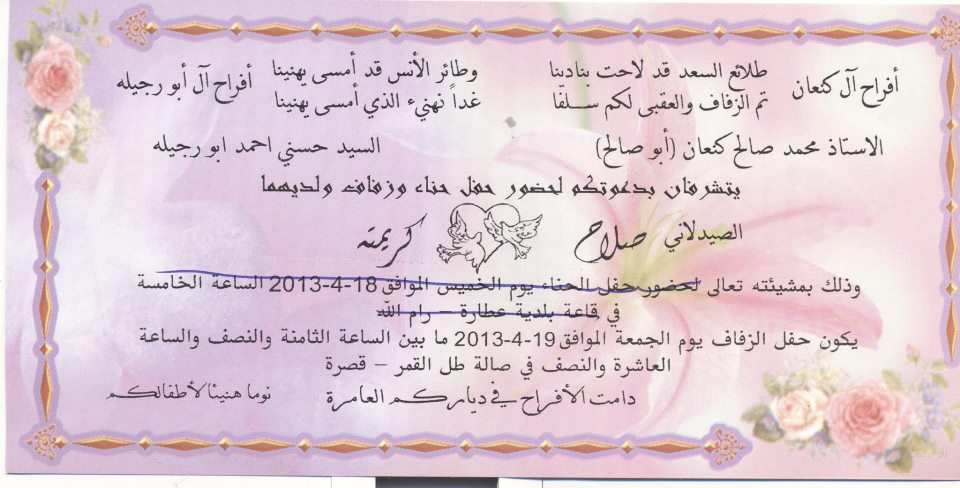 أفراح آل كنعان
طلائع السعد قد لاحت بنادينا وطائر الأنس قد أمسى يهنينا
تم الزفاف والعقبى لكم سلفا غداً نهنيء الذي أمسى يهنينا
أفراح آل أبو رجيله
الاستاذ محمد صالح كنعان (أبو صالح) السيد حسني احمد ابو رجيله
يتشرفان بدعوتكم لحضور حفل حناء وزفاف ولديهما
الصيدلاني صلاح كريمته
وذلك بمشيئته تعالى لحضور حفل الحناء يوم الخميس الموافق 18-4-2013 الساعة الخامسة
في قاعة بلدية عطارة – رام الله
يكون حفل الزفاف يوم الجمعة الموافق 19-4-2013 ما بين الساعة الثامنة والنصف والساعة
العاشرة والنصف في صالة طل القمر – قصرة
دامت الأفراح في دياركم العامرة نوما هنيئا لأطفالكم